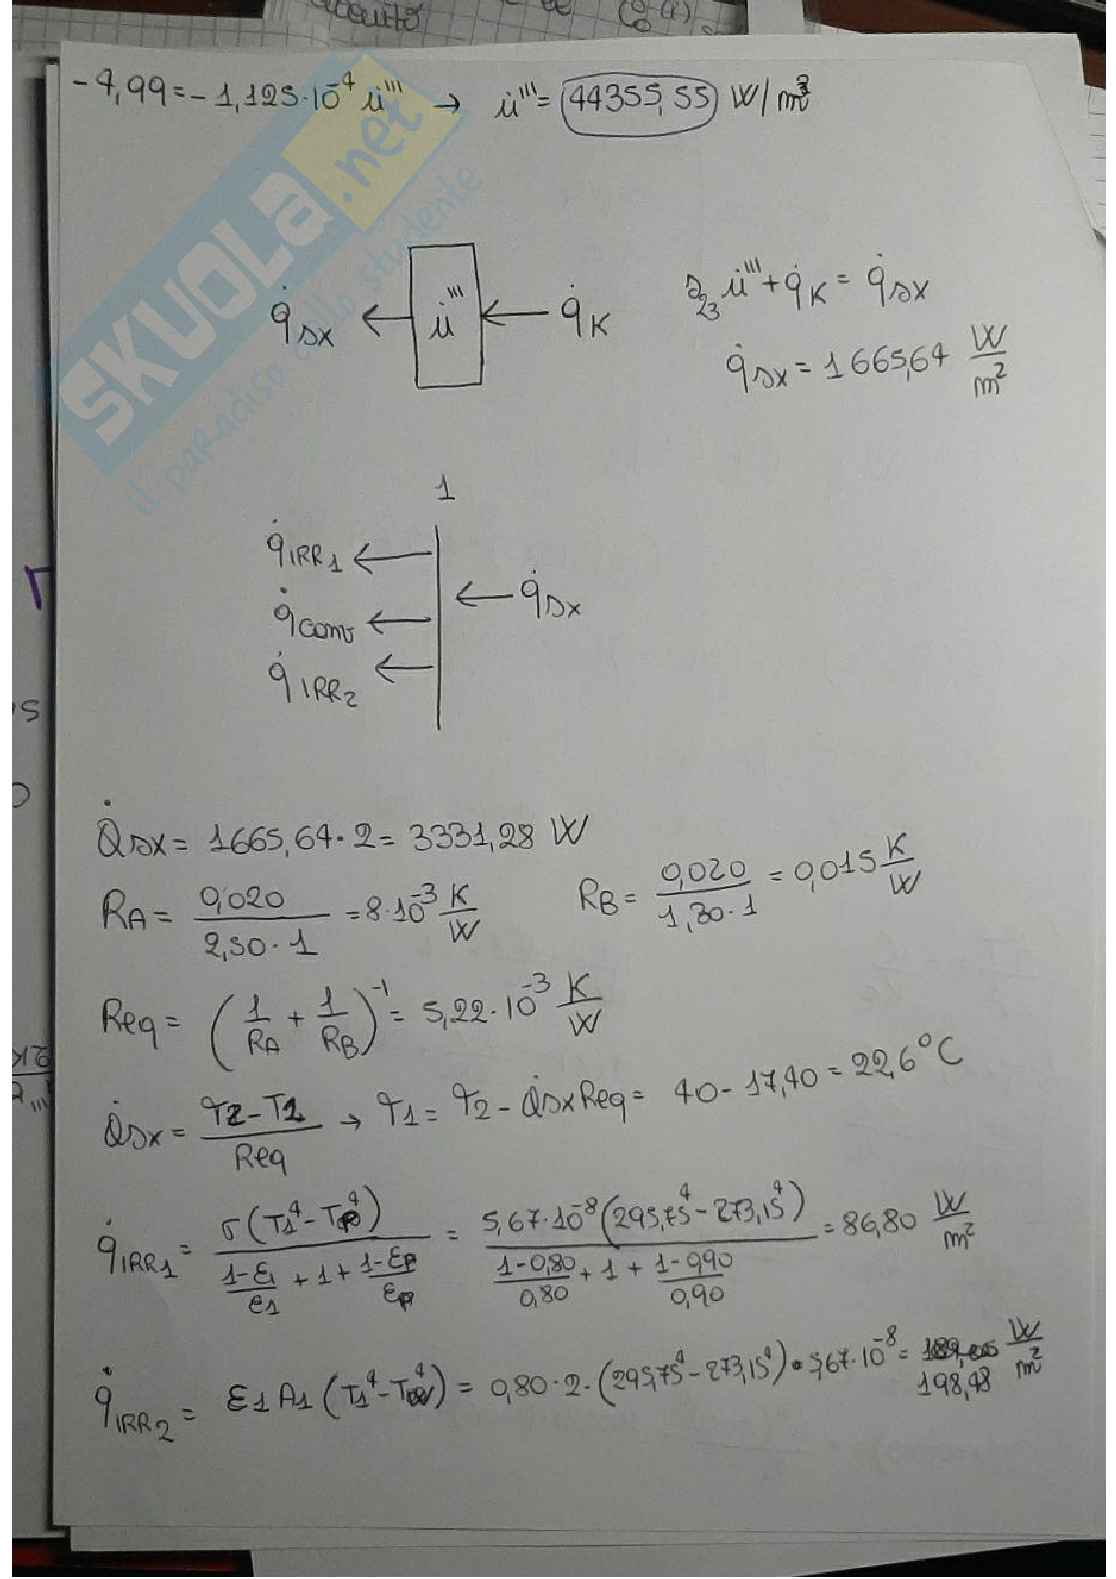 -4,99=-1,125·10⁻⁴ u̇''' → u̇'''= 44355,55 W/m³
SKUOLA.net
il paradiso dello studente
q̇sx ← u̇''' ← q̇K
s₂₃ u̇''' + q̇K = q̇sx
q̇sx = 1665,64 W/m²
1
q̇IRR1 ←
← q̇sx
q̇conv ←
q̇IRR2 ←
Q̇sx = 1665,64·2 = 3331,28 W
RA = 0,020/(2,50·1) = 8·10⁻³ K/W
RB = 0,020/(1,30·1) = 0,015 K/W
Req = (1/RA + 1/RB)⁻¹ = 5,22·10⁻³ K/W
Q̇sx = (T2-T1)/Req → T1 = T2 - Q̇sx Req = 40-17,40 = 22,6°C
q̇IRR1 = σ(T1⁴-Tp⁴)/((1-ε1)/ε1 + 1 + (1-εp)/εp) = 5,67·10⁻⁸(295,75⁴-273,15⁴)/((1-0,80)/0,80 + 1 + (1-0,90)/0,90) = 86,80 W/m²
q̇IRR2 = ε1 A1 (T1⁴-T⁴) = 0,80·2·(295,75⁴-273,15⁴)·5,67·10⁻⁸ = 198,48 W/m²